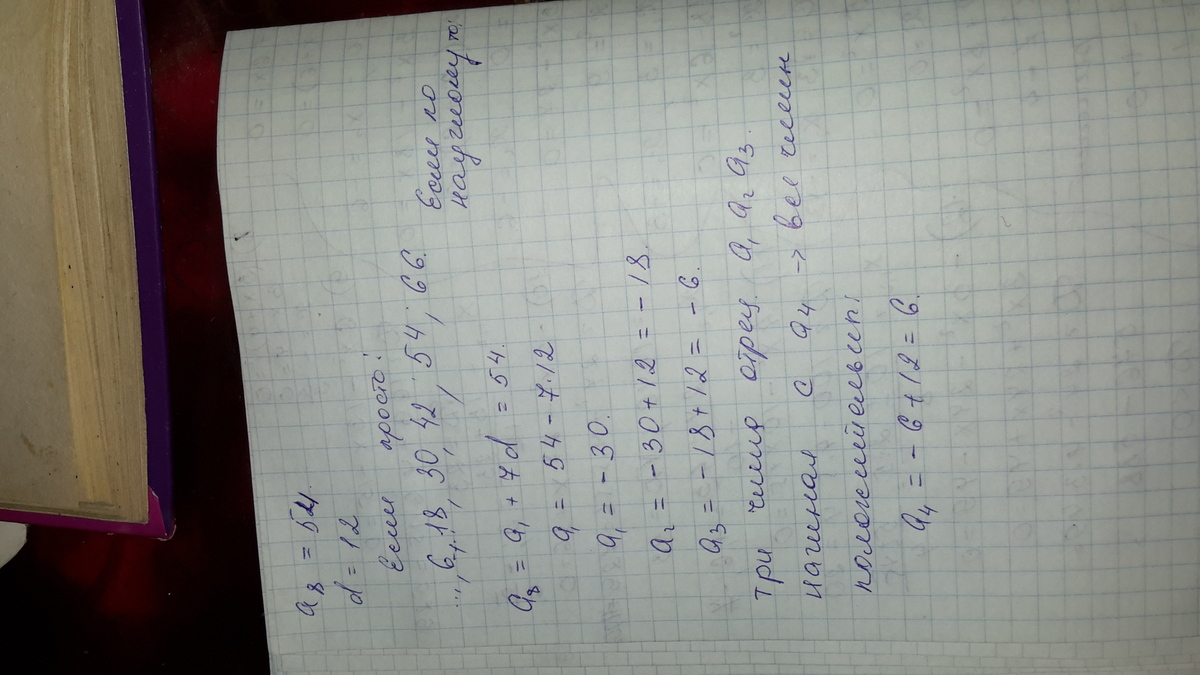 a₈ = 54.
d = 12
Если просто:
..., 6, 18, 30, 42, 54, 66.
Если по
научному то:
a₈ = a₁ + 7d = 54.
a₁ = 54 - 7·12
a₁ = -30.
a₂ = -30 + 12 = -18.
a₃ = -18 + 12 = -6.
три числа отрец. a₁ a₂ a₃.
начиная с a₄ → все члены
положительны:
a₄ = -6 + 12 = 6.